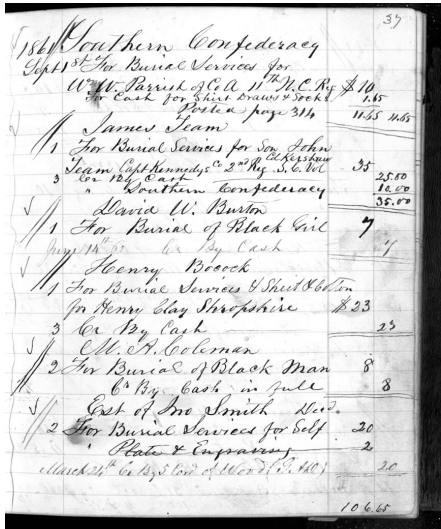 37
1861 Southern Confederacy
Sept 1st For Burial Services for
Wm W. Parrish of Co A 11th N.C. Reg $10
For Cash for Shirt Draws & Socks 1.65
Posted page 314 11.65 11.65
James Team
1 For Burial Services for Son John
Team Capt Kennedys Co 2nd Reg S.C. Vol Col Kershaw 35
3 Cr By Cash 25.00
" Southern Confederacy 10.00
35.00
David W. Burton
1 For Burial of Black Girl 7
June 14th Cr By Cash 7
Henry Bocock
1 For Burial Services & Shirt &
for Henry Clay Shropshire $23
3 Cr By Cash 23
M. A. Coleman
2 For Burial of Black Man 8
Cr By Cash in full 8
Est of Jno Smith Decd.
2 For Burial Services for Self 20
Plate & Engraving 2
March 24th Cr By 5 Cord of Wood 20
106.65